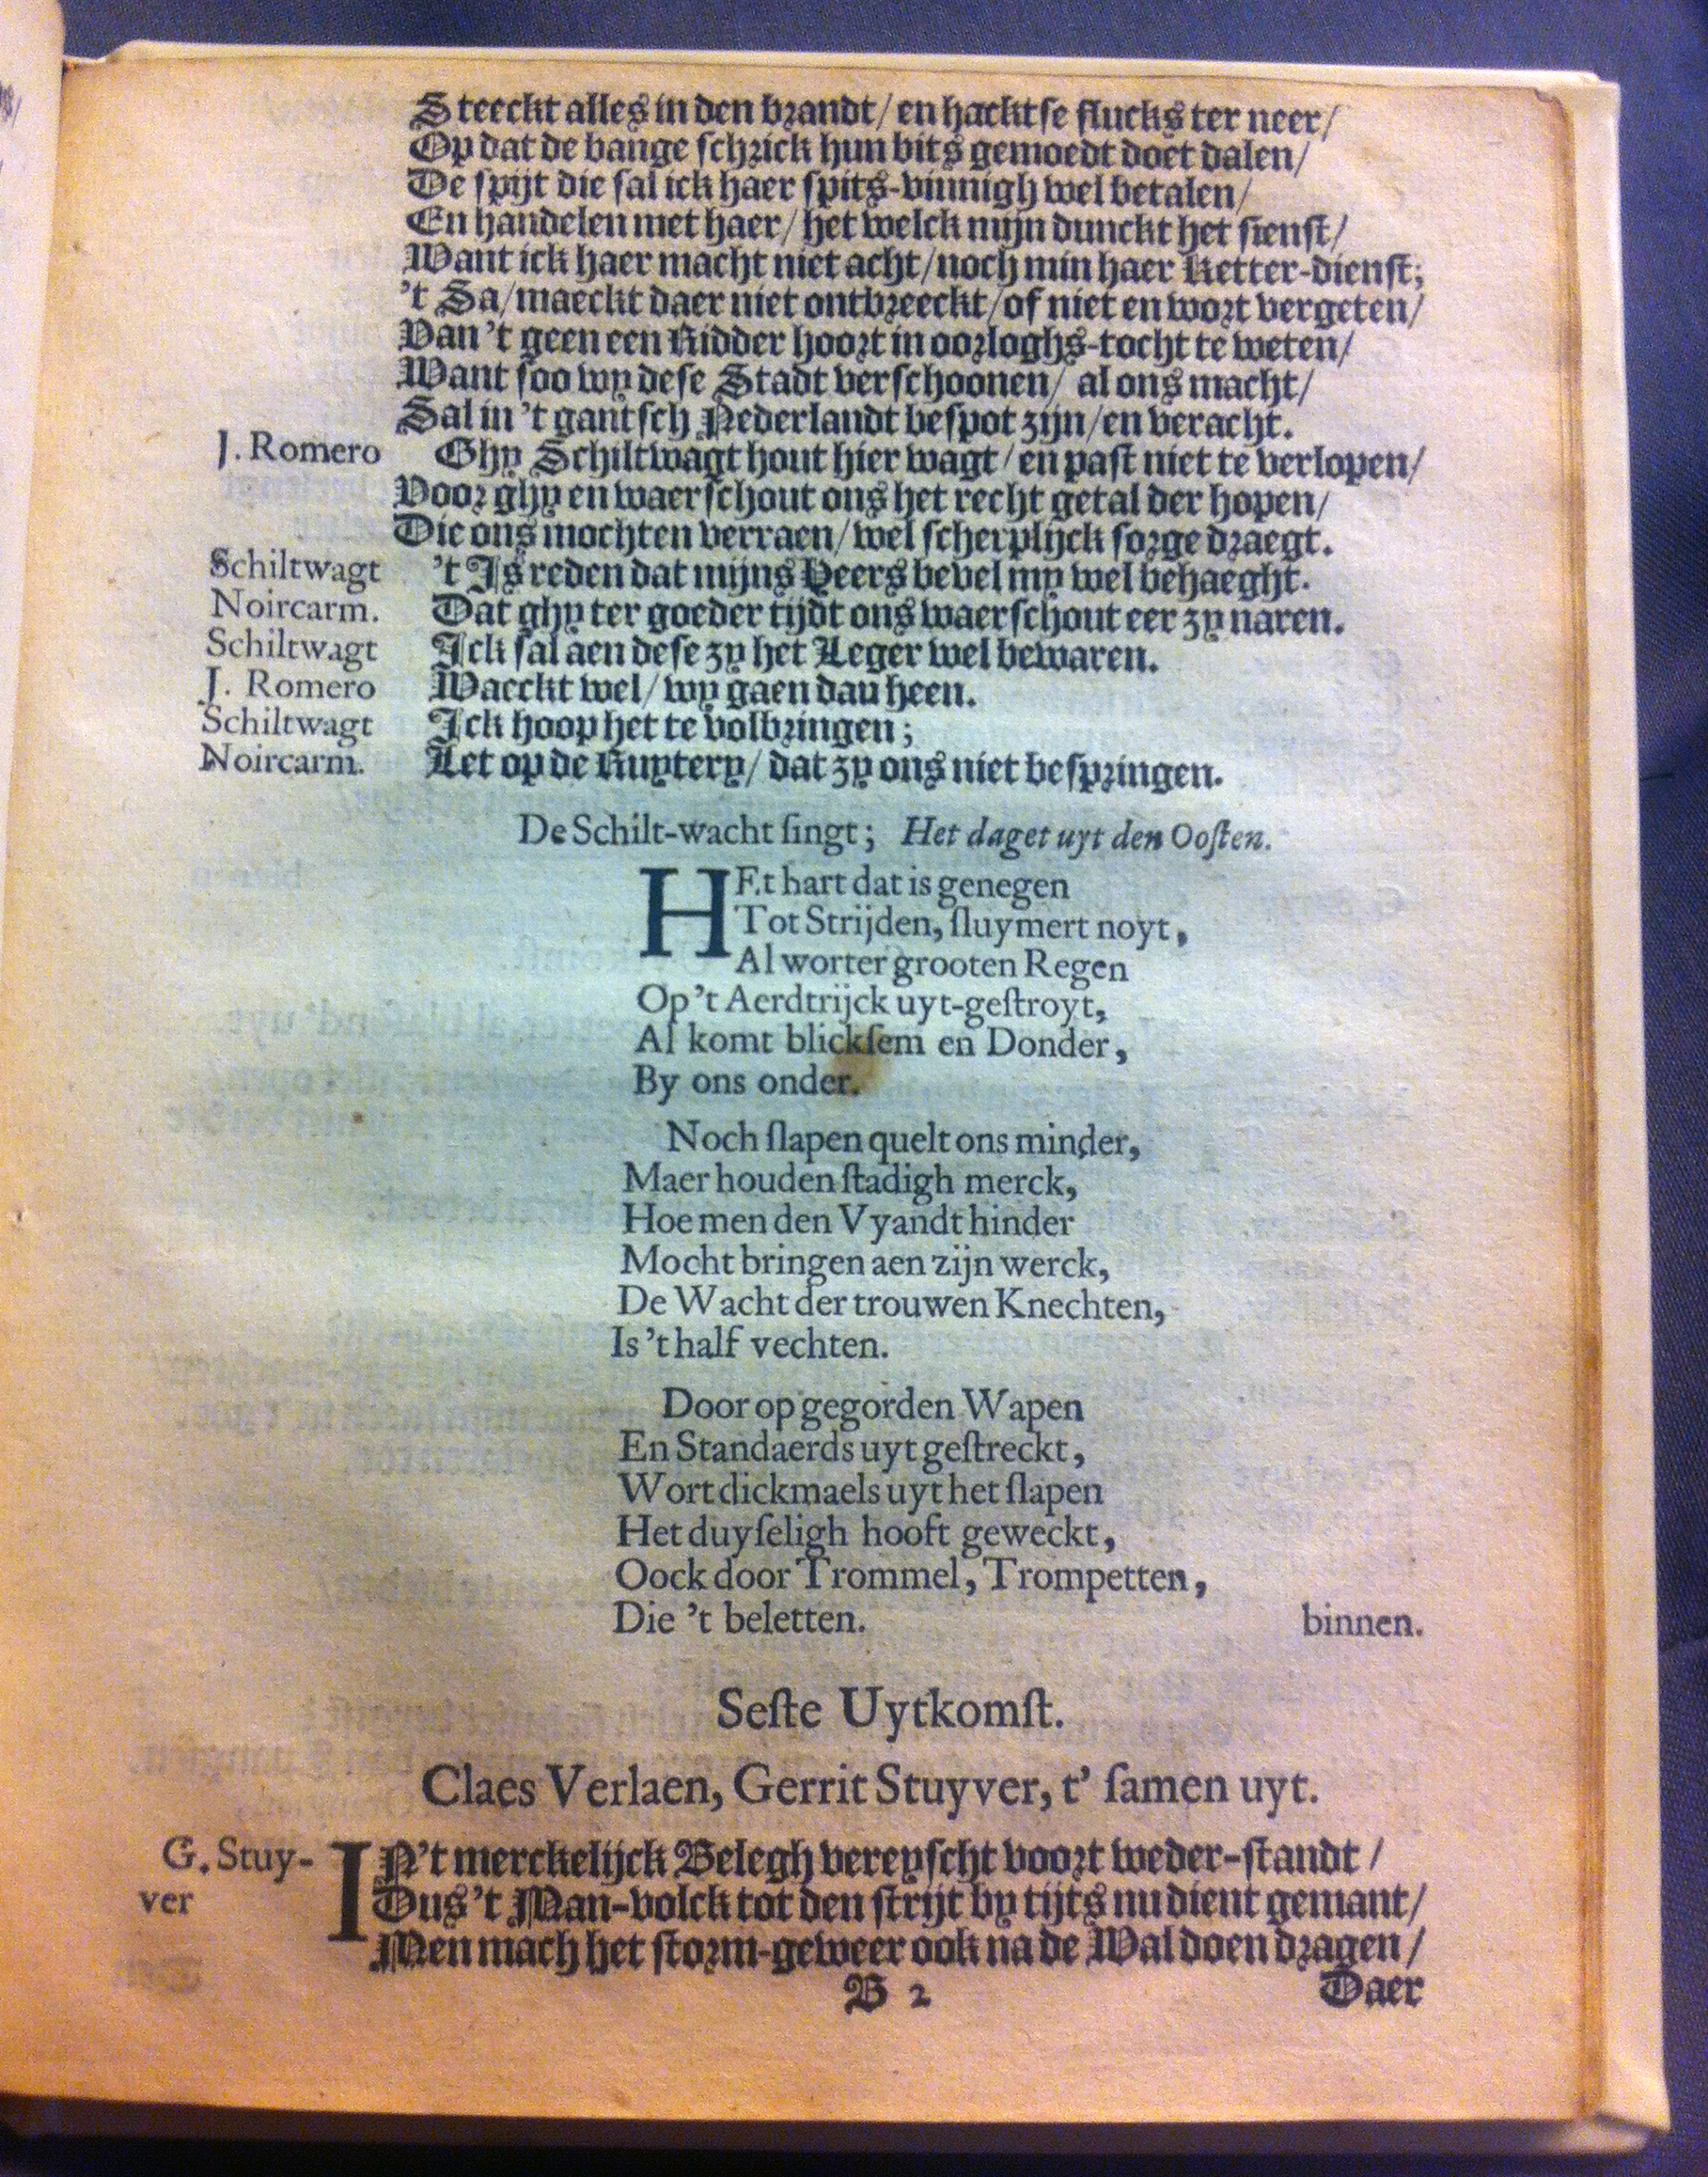 Steeckt alles in den brandt/ en hacktse flucks ter neer/
Op dat de bange schrick hun bits gemoedt doet dalen/
De spijt die sal ick haer spits-vinnigh wel betalen/
En handelen met haer/ het welck mijn dunckt het sienst/
Want ick haer macht niet acht/ noch min haer Ketter-dienst;
't Sa/ maeckt daer niet ontbreeckt/ of niet en wort vergeten/
Van 't geen een Ridder hoort in oorloghs-tocht te weten/
Want soo wy dese Stadt verschoonen/ al ons macht/
Sal in 't gantsch Nederlandt bespot zijn/ en veracht.
J. Romero Ghy Schiltwagt hout hier wagt/ en past niet te verlopen/
Voor ghy en waerschout ons het recht getal der hopen/
Die ons mochten verraen/ wel scherplijck sorge draegt.
Schiltwagt 't Is reden dat mijns Heers bevel my wel behaeght.
Noircarm. Dat ghy ter goeder tijdt ons waerschout eer zy naren.
Schiltwagt Ick sal aen dese zy het Leger wel bewaren.
J. Romero Maeckt wel/ wy gaen dau heen.
Schiltwagt Ick hoop het te volbringen;
Noircarm. Let op de Ruytery/ dat zy ons niet bespringen.
De Schilt-wacht singt; Het daget uyt den Oosten.
HEt hart dat is genegen
Tot Strijden, sluymert noyt,
Al worter grooten Regen
Op 't Aerdtrijck uyt-gestroyt,
Al komt blicksem en Donder,
By ons onder.
Noch slapen quelt ons minder,
Maer houden stadigh merck,
Hoe men den Vyandt hinder
Mocht bringen aen zijn werck,
De Wacht der trouwen Knechten,
Is 't half vechten.
Door op gegorden Wapen
En Standaerds uyt gestreckt,
Wort dickmaels uyt het slapen
Het duyseligh hooft geweckt,
Oock door Trommel, Trompetten,
Die 't beletten. binnen.
Seste Uytkomst.
Claes Verlaen, Gerrit Stuyver, t' samen uyt.
G. Stuy- IN 't merckelijck Belegh vereyscht voort weder-standt/
ver Dus 't Man-volck tot den strijt by tijts nu dient gemant/
Men mach het storm-geweer ook na de Wal doen dragen/
B 2 Daer